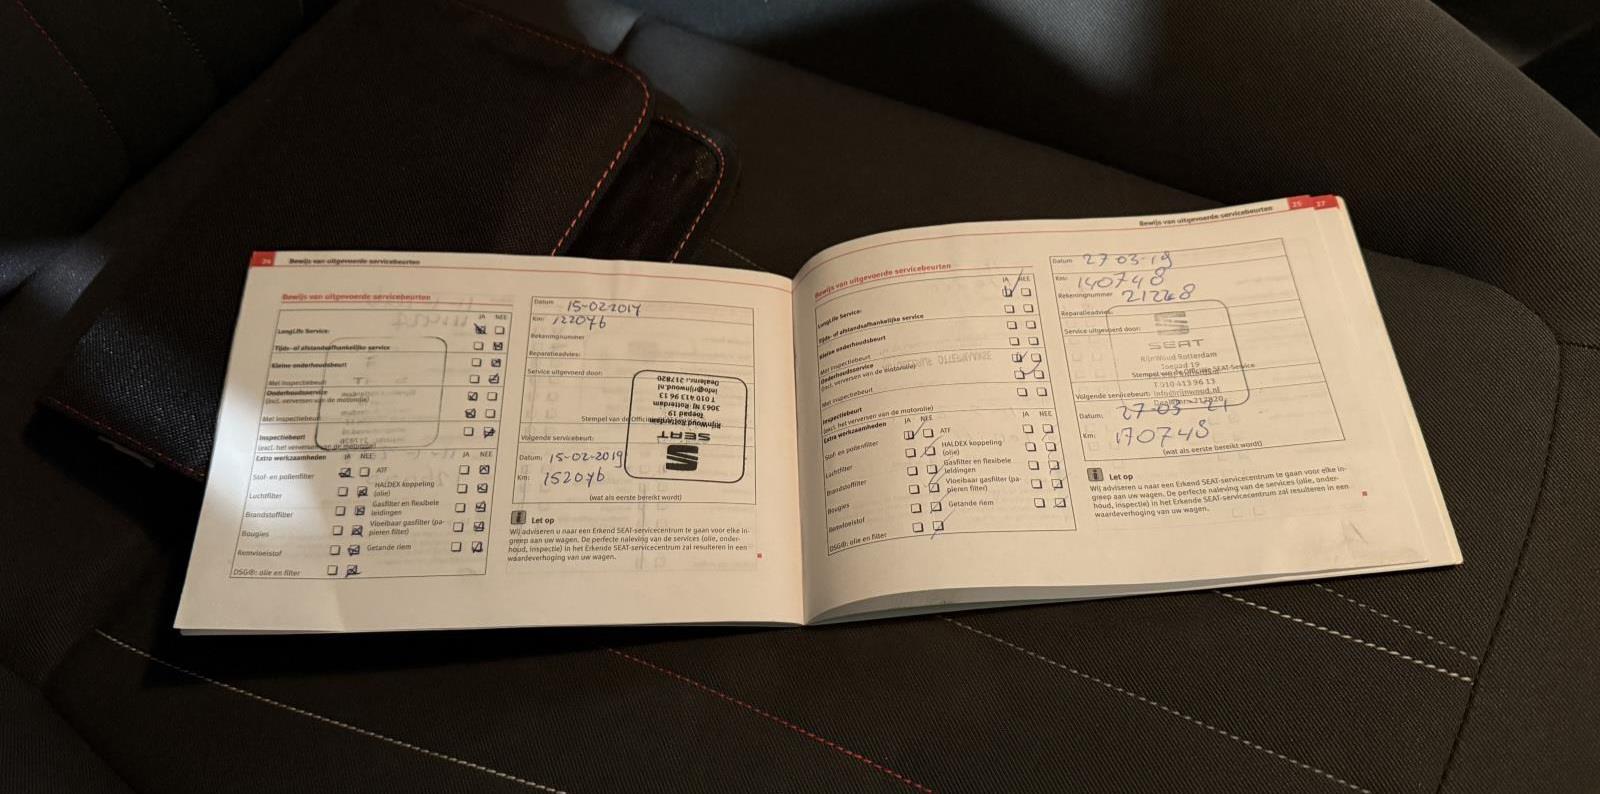 24 Bewijs van uitgevoerde servicebeurten
Bewijs van uitgevoerde servicebeurten
JA NEE
LongLife Service:
Tijds- of afstandsafhankelijke service
Kleine onderhoudsbeurt
Met inspectiebeurt
Onderhoudsservice
(incl. verversen van de motorolie)
Met inspectiebeurt
Inspectiebeurt
(excl. het verversen van de motorolie)
Extra werkzaamheden JA NEE JA NEE
Stof- en pollenfilter
Luchtfilter
Brandstoffilter
Bougies
Remvloeistof
DSG®: olie en filter
ATF
HALDEX koppeling
(olie)
Gasfilter en flexibele
leidingen
Vloeibaar gasfilter (pa-
pieren filter)
Getande riem
Datum 15-02-2017
Km: 122076
Rekeningnummer
Reparatieadvies:
Service uitgevoerd door:
Stempel van de Officiële
SEAT
RijnWoud Rotterdam
Toepad 19
3063 NJ Rotterdam
T 010 413 96 13
info@rijnwoud.nl
Dealernr. 217820
Volgende servicebeurt:
Datum: 15-02-2019
Km: 152076
(wat als eerste bereikt wordt)
Let op
Wij adviseren u naar een Erkend SEAT-servicecentrum te gaan voor elke in-
greep aan uw wagen. De perfecte naleving van de services (olie, onder-
houd, inspectie) in het Erkende SEAT-servicecentrum zal resulteren in een
waardeverhoging van uw wagen.
Bewijs van uitgevoerde servicebeurten 25 27
Bewijs van uitgevoerde servicebeurten
JA NEE
LongLife Service:
Tijds- of afstandsafhankelijke service
Kleine onderhoudsbeurt
Met inspectiebeurt
Onderhoudsservice
(incl. verversen van de motorolie)
Met inspectiebeurt
Inspectiebeurt
(excl. het verversen van de motorolie)
Extra werkzaamheden JA NEE JA NEE
Stof- en pollenfilter
Luchtfilter
Brandstoffilter
Bougies
Remvloeistof
DSG®: olie en filter
ATF
HALDEX koppeling
(olie)
Gasfilter en flexibele
leidingen
Vloeibaar gasfilter (pa-
pieren filter)
Getande riem
Datum 27-03-19
Km: 140748
Rekeningnummer 21248
Reparatieadvies:
Service uitgevoerd door:
SEAT
RijnWoud Rotterdam
Toepad 19
Stempel van de Officiële SEAT-Service
T 010 413 96 13
info@rijnwoud.nl
Dealernr. 217820
Volgende servicebeurt:
Datum: 27-03-21
Km: 170748
(wat als eerste bereikt wordt)
Let op
Wij adviseren u naar een Erkend SEAT-servicecentrum te gaan voor elke in-
greep aan uw wagen. De perfecte naleving van de services (olie, onder-
houd, inspectie) in het Erkende SEAT-servicecentrum zal resulteren in een
waardeverhoging van uw wagen.